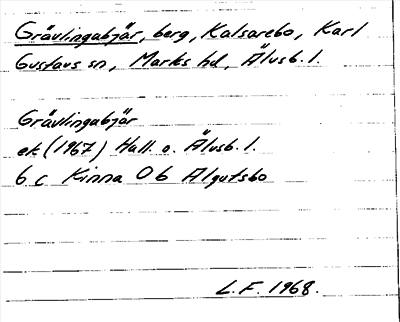 Grävlingabjär, berg, Kalsarebo, Karl
Gustavs sn, Marks hd, Älvsb. l.
Grävlingabjär
ek (1967) Hall. o. Älvsb. l.
6 c Kinna 0 b Algutsbo
L.F. 1968.